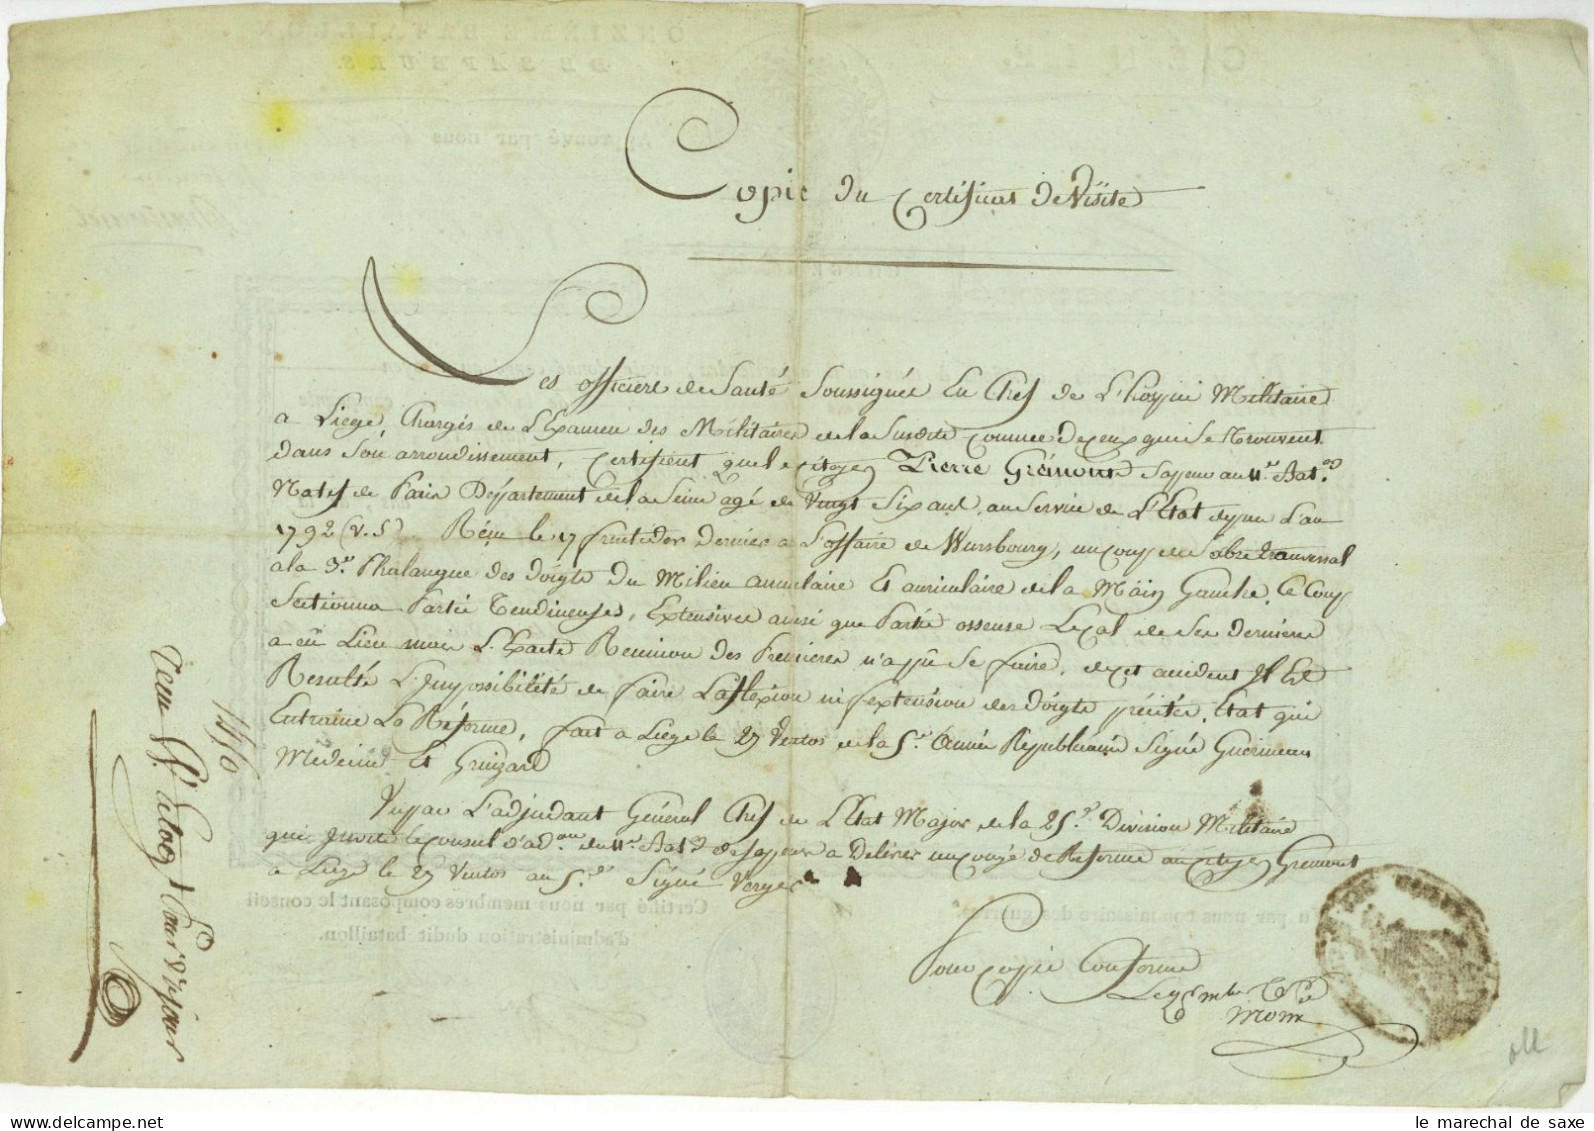 Copie du Certificat de Visite
Les officiers de Santé Soussignés En Chef de L'hopital Militaire
a Liege, Chargés de L'Examen des Militaires de la Susdite Commune De ceux qui se trouvent
dans Son arrondissement, Certifient que le Citoyen Pierre Grémont Sapeur au 11.e Bat.on
Natif de Paris Département de la Seine agé de Vingt Six ans, au Service de L'Etat depuis L'an
1792 (v.s) Reçu le 17 fructidor Dernier a L'affaire de Wursbourg, un coup de Sabre transversal
a la 3.e Phalangue des doigts du Milieu annulaire Et auriculaire de la Main Gauche, Ce Coup
Sectionna Partie Tendineuses, Extensives ainsi que Partie osseuse Le Cal de Ses dernieres
a eû Lieu mais L'Exacte Reunion des Premieres n'a pû Se faire, de cet accident Il Est
Resulté L'Impossibilité de faire La flexion ni l'extension des doigts précités, Etat qui
Entraine La Réforme, fait a Liege le 27 Ventos de la 5.e Année Républicaine Signé Guerineau
Médecin Et Grinzard
Vu par L'adjudant Général Chef de L'Etat Major de la 25.e Division Militaire
qui Invite le Conseil d'ad.on du 11.e Bat.on de Sapeurs a Delivrer un congé de Reforme au Citoyen Gremont
a Liege le 27 Ventos an 5.e Signé Verger
Pour Copie Conforme
11450
le marechal de saxe